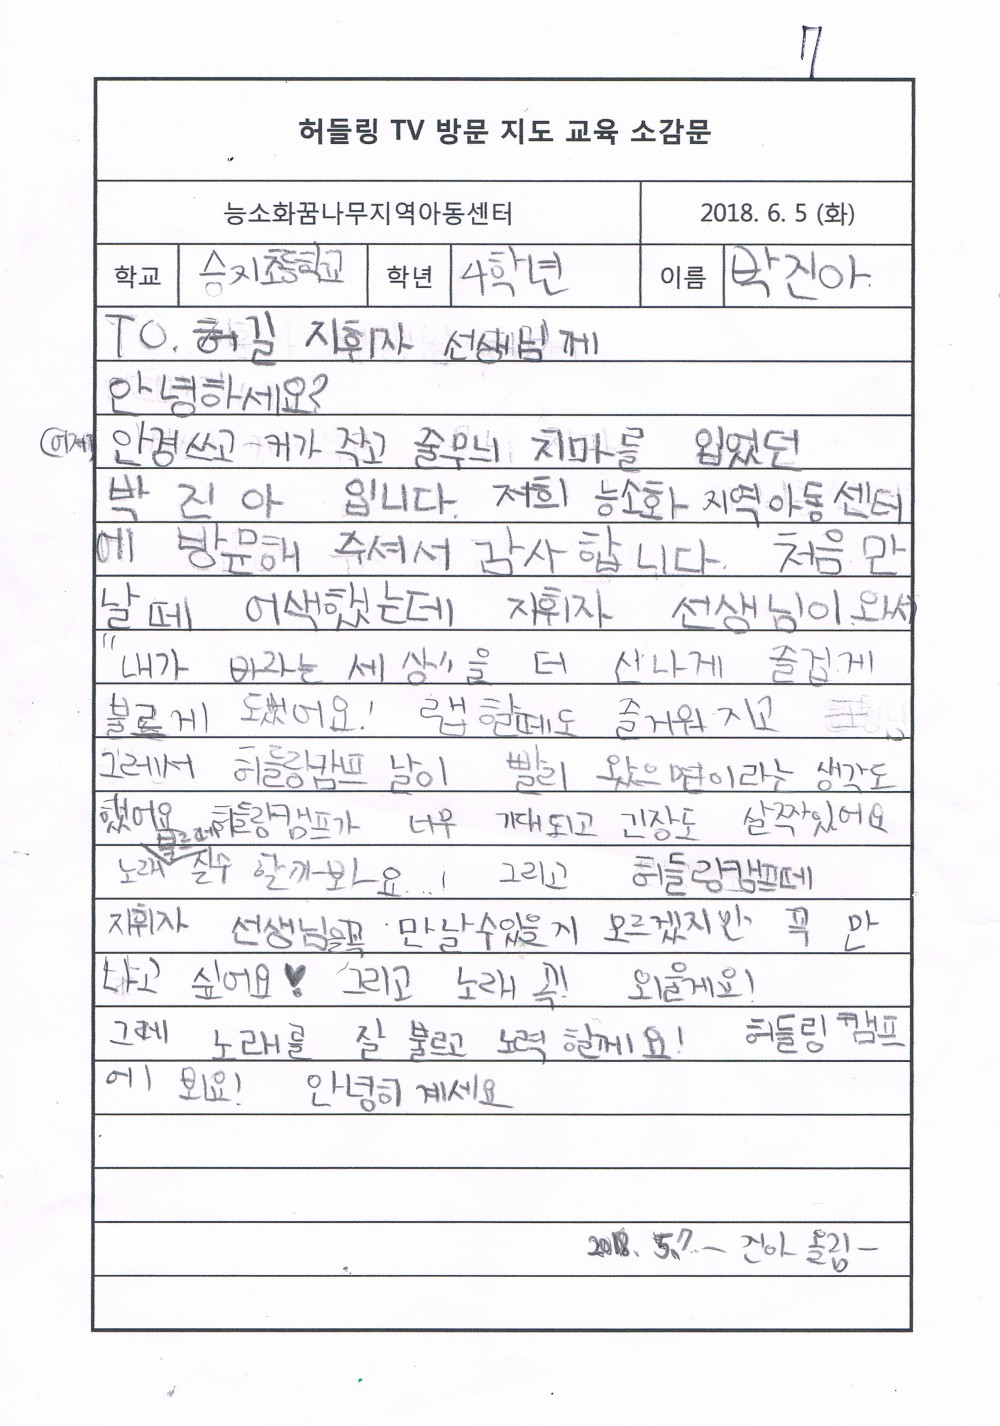 7
허들링 TV 방문 지도 교육 소감문
능소화꿈나무지역아동센터 2018. 6. 5 (화)
학교 승지초등학교 학년 4학년 이름 박진아
TO. 허길 지휘자 선생님께
안녕하세요?
어제 안경쓰고 키가 작고 줄무늬 치마를 입었던
박 진 아 입니다. 저희 능소화 지역아동센터
에 방문해 주셔서 감사합니다. 처음 만
날 떼 어색했는데 지휘자 선생님이 와서
"내가 바라는 세상"을 더 신나게 즐겁게
불르게 됐어요! 랩 할떼도 즐거워 지고
그레서 허들링캄프 날이 빨리 왔으면이라는 생각도
했어요 허들링캠프가 너무 기대되고 긴장도 살짝있어요
노래 부르떼 실수 할까봐요...! 그리고 허들링캠프떼
지휘자 선생님을꼭 만날수있을지 모르겠지만 꼭 만
나고 싶어요♥ 그리고 노래 꼭! 외울게요!
그떼 노래를 잘 불르고 노력 할께요! 허들링 캠프
에 뵈요! 안녕히 계세요
2018. 5.7. - 진아 올림 -